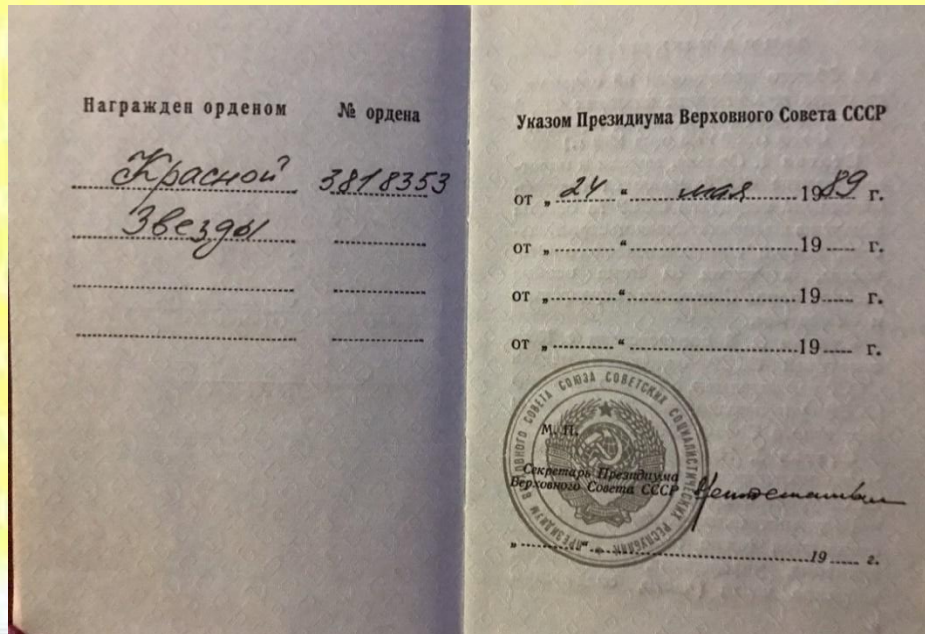 Награжден орденом
№ ордена
Красной
3818353
Звезды
Указом Президиума Верховного Совета СССР
от „ 24 “ мая 1989 г.
от „ “ 19 г.
от „ “ 19 г.
от „ “ 19 г.
ПРЕЗИДИУМ ВЕРХОВНОГО СОВЕТА СОЮЗА СОВЕТСКИХ СОЦИАЛИСТИЧЕСКИХ РЕСПУБЛИК
М. П.
Секретарь Президиума
Верховного Совета СССР
„ “ 19 г.